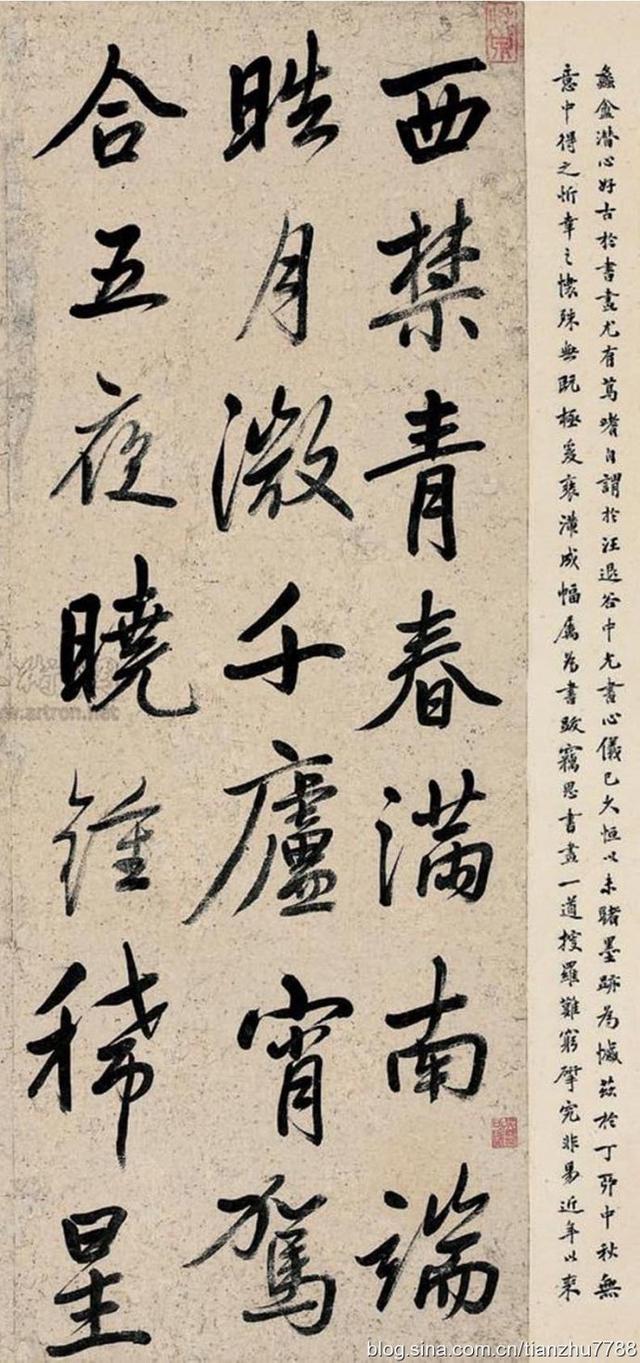 蠡盦潛心好古於書畫尤有篤嗜自謂於汪退谷中允書心儀已久恒以未睹墨跡為憾茲於丁卯中秋無
意中得之忻幸之懷殊無既極爰裝潢成幅屬為書跋竊思書畫一道搜羅難窮擘究非易近年以來
西禁青春滿南端
晧月微千廬宵駕
合五夜曉鍾稀星
www.artron.net
blog.sina.com.cn/tianzhu7788